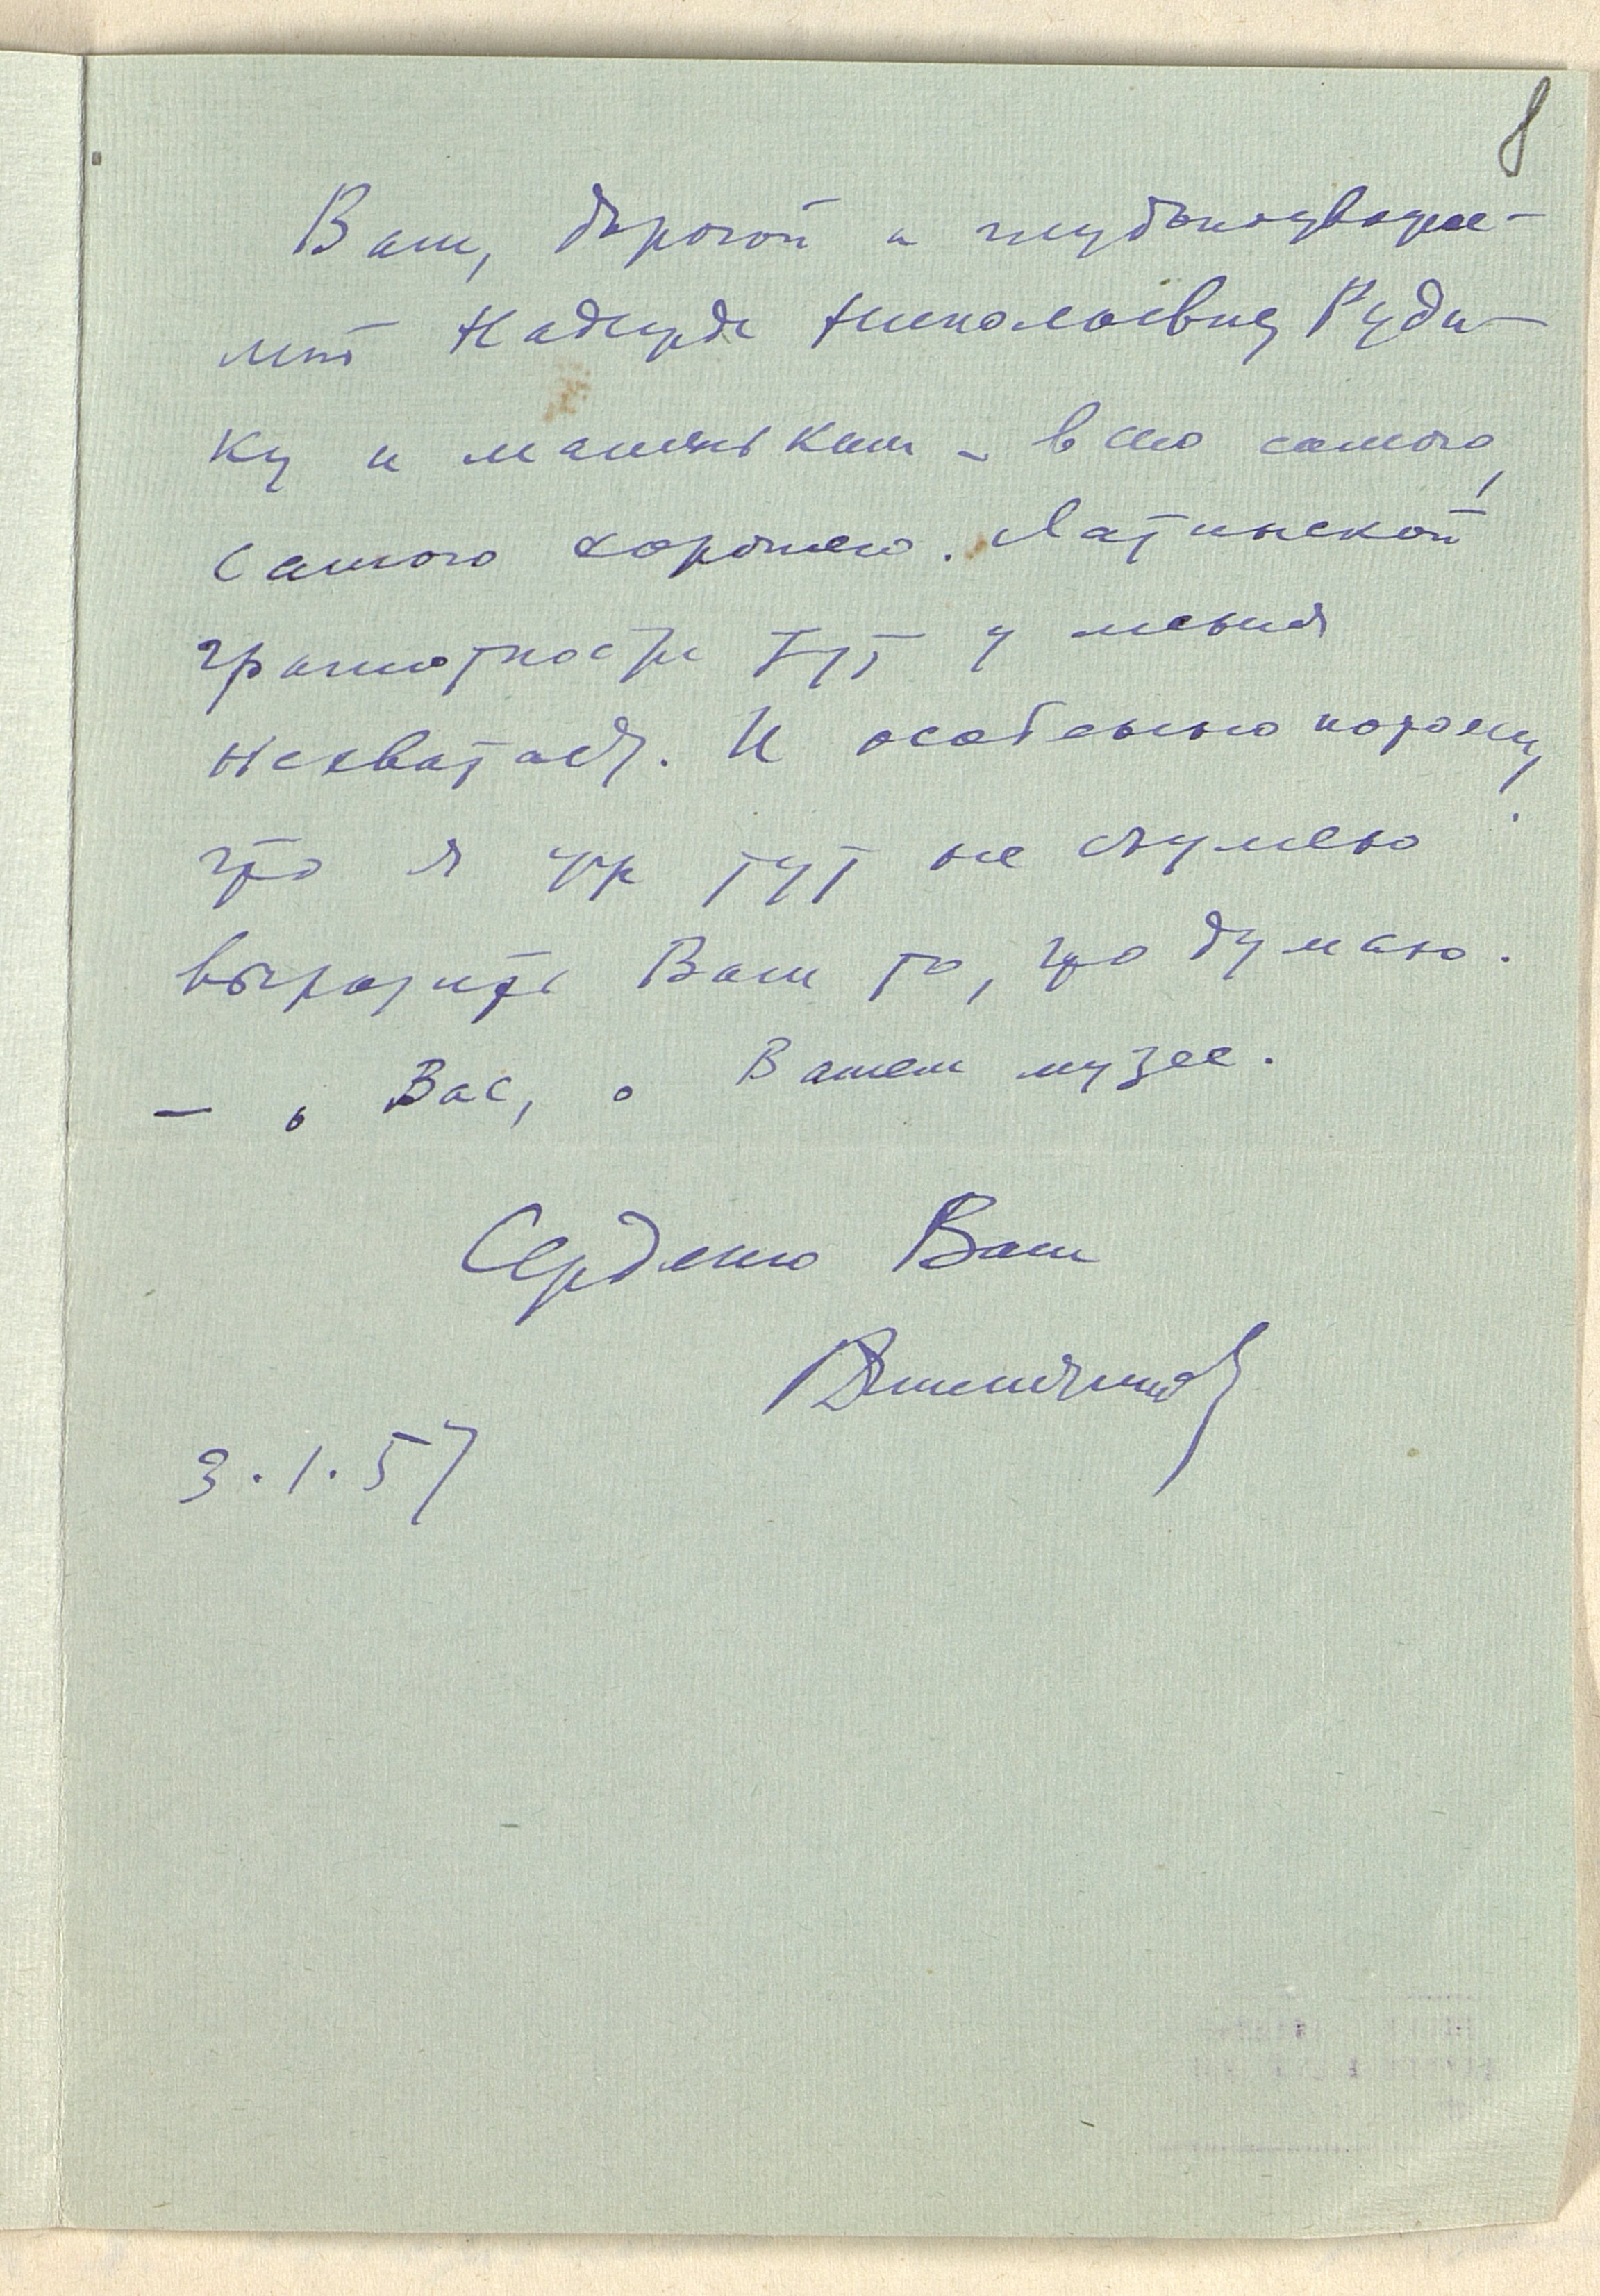 8
Вам, дорогой и глубокоуважае-
мой Надежде Николаевне, Руди-
ку и маленьким – всего самого,
самого хорошего. Латинской
грамотности тут у меня
нехватает. И особенно потому,
что я уж тут не сумею
выразить Вам то, что думаю.
– о Вас, о Вашем музее.
Сердечно Ваш
3.1.57